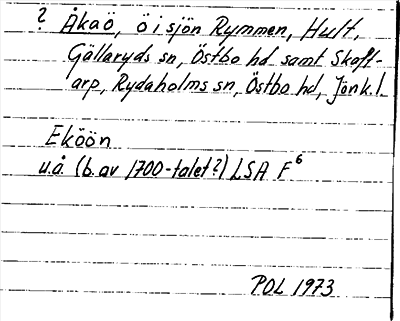 ? Åkaö, ö i sjön Rymmen, Hult,
Gällaryds sn, Östbo hd samt Skaft-
arp, Rydaholms sn, Östbo hd, Jönk. l.
Eköön
u.å. (b. av 1700-talet?) LSA F6
POL 1973